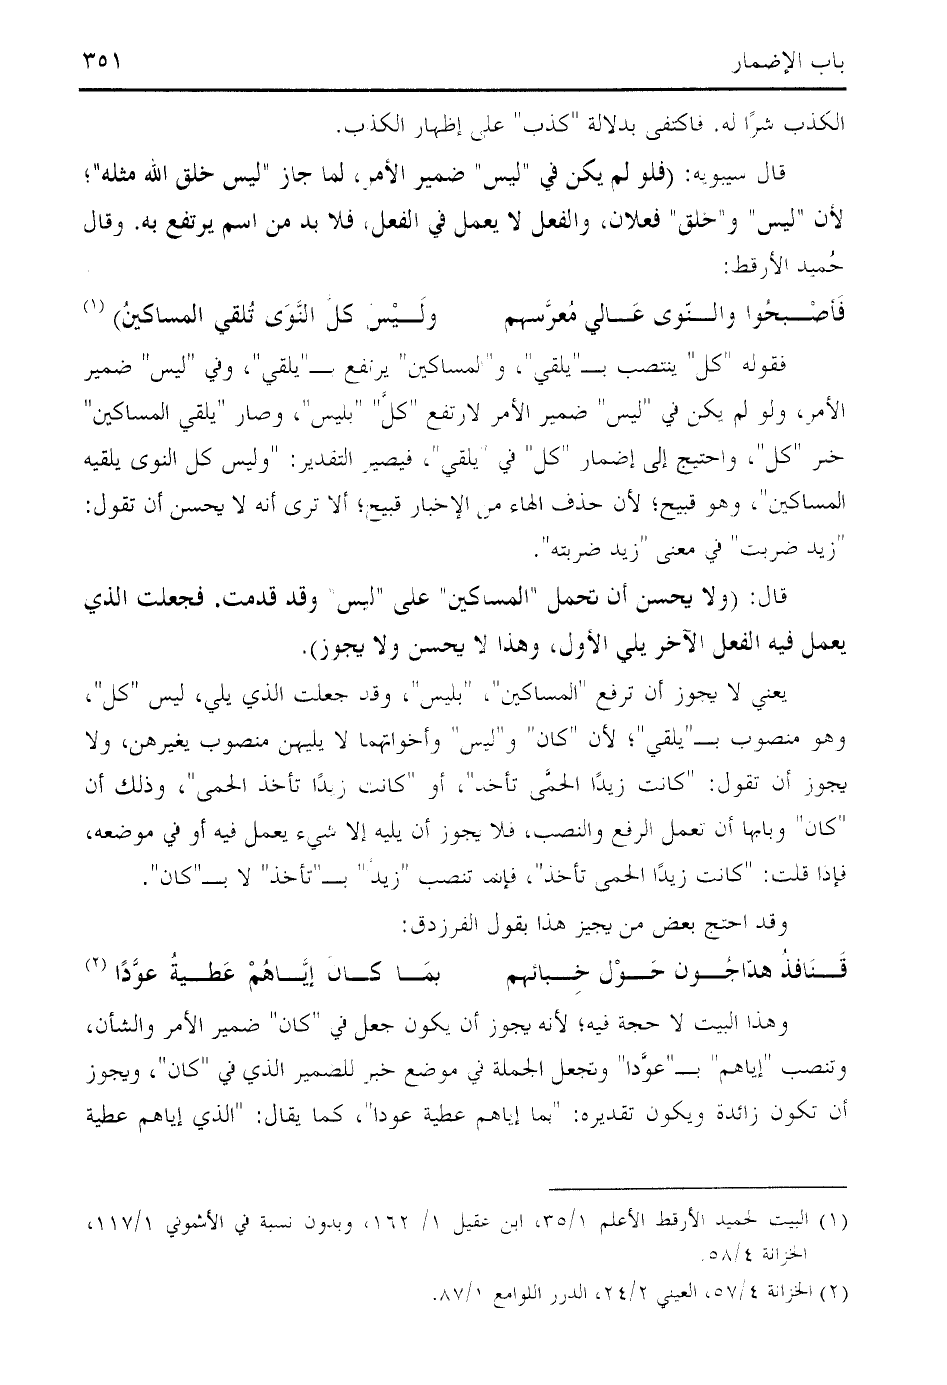 باب الإضمار ٣٥١
الكذب شرًا له. فاكتفى بدلالة "كذب" على إظهار الكذب.
قال سيبويه: (فلو لم يكن في "ليس" ضمير الأمر، لما جاز "ليس خلق الله مثله"؛
لأن "ليس" و"خلق" فعلان، والفعل لا يعمل في الفعل، فلا بد من اسم يرتفع به. وقال
حُميد الأرقط:
فَأصْـــبحُوا والـــنّوى عَـــالي مُعرَّسهم ولَـــيْسَ كلَ النَّوَى تُلقي المساكينُ) (١)
فقوله "كل" ينتصب بـــ"يلقي"، و"المساكين" يرتفع بـــ"يلقي"، وفي "ليس" ضمير
الأمر، ولو لم يكن في "ليس" ضمير الأمر لارتفع "كلَّ" "بليس"، وصار "يلقي المساكين"
خبر "كل"، واحتيج إلى إضمار "كل" في "يلقي"، فيصير التقدير: "وليس كل النوى يلقيه
المساكين"، وهو قبيح؛ لأن حذف الهاء من الإخبار قبيح؛ ألا ترى أنه لا يحسن أن تقول:
"زيد ضربت" في معنى "زيد ضربته".
قال: (ولا يحسن أن تحمل "المساكين" على "ليس" وقد قدمت. فجعلت الذي
يعمل فيه الفعل الآخر يلي الأول، وهذا لا يحسن ولا يجوز).
يعني لا يجوز أن ترفع "المساكين"، "بليس"، وقد جعلت الذي يلي، ليس "كل"،
وهو منصوب بـــ"يلقي"؛ لأن "كان" و"ليس" وأخواتهما لا يليهن منصوب يغيرهن، ولا
يجوز أن تقول: "كانت زيدًا الحمَّى تأخذ"، أو "كانت زيدًا تأخذ الحمى"، وذلك أن
"كان" وبابها أن تعمل الرفع والنصب، فلا يجوز أن يليه إلا شيء يعمل فيه أو في موضعه،
فإذا قلت: "كانت زيدًا الحمى تأخذ"، فإنما تنصب "زيد" بـــ"تأخذ" لا بـــ"كان".
وقد احتج بعض من يجيز هذا بقول الفرزدق:
قَـــنَافذُ هدّاجُـــون حَـــوْل خِـــبائهم بمَـــا كـــان إيَّـــاهُمْ عَطـــيةُ عوَّدًا (٢)
وهذا البيت لا حجة فيه؛ لأنه يجوز أن يكون جعل في "كان" ضمير الأمر والشأن،
وتنصب "إياهم" بـــ"عوَّدا" وتجعل الجملة في موضع خبر للضمير الذي في "كان"، ويجوز
أن تكون زائدة ويكون تقديره: "بما إياهم عطية عودا"، كما يقال: "الذي إياهم عطية
(١) البيت لحميد الأرقط الأعلم ١/٣٥، ابن عقيل ١/ ١٦٢، وبدون نسبة في الأشموني ١/١١٧،
الخزانة ٤/٥٨.
(٢) الخزانة ٤/٥٧، العيني ٢/٢٤، الدرر اللوامع ١/٨٧.